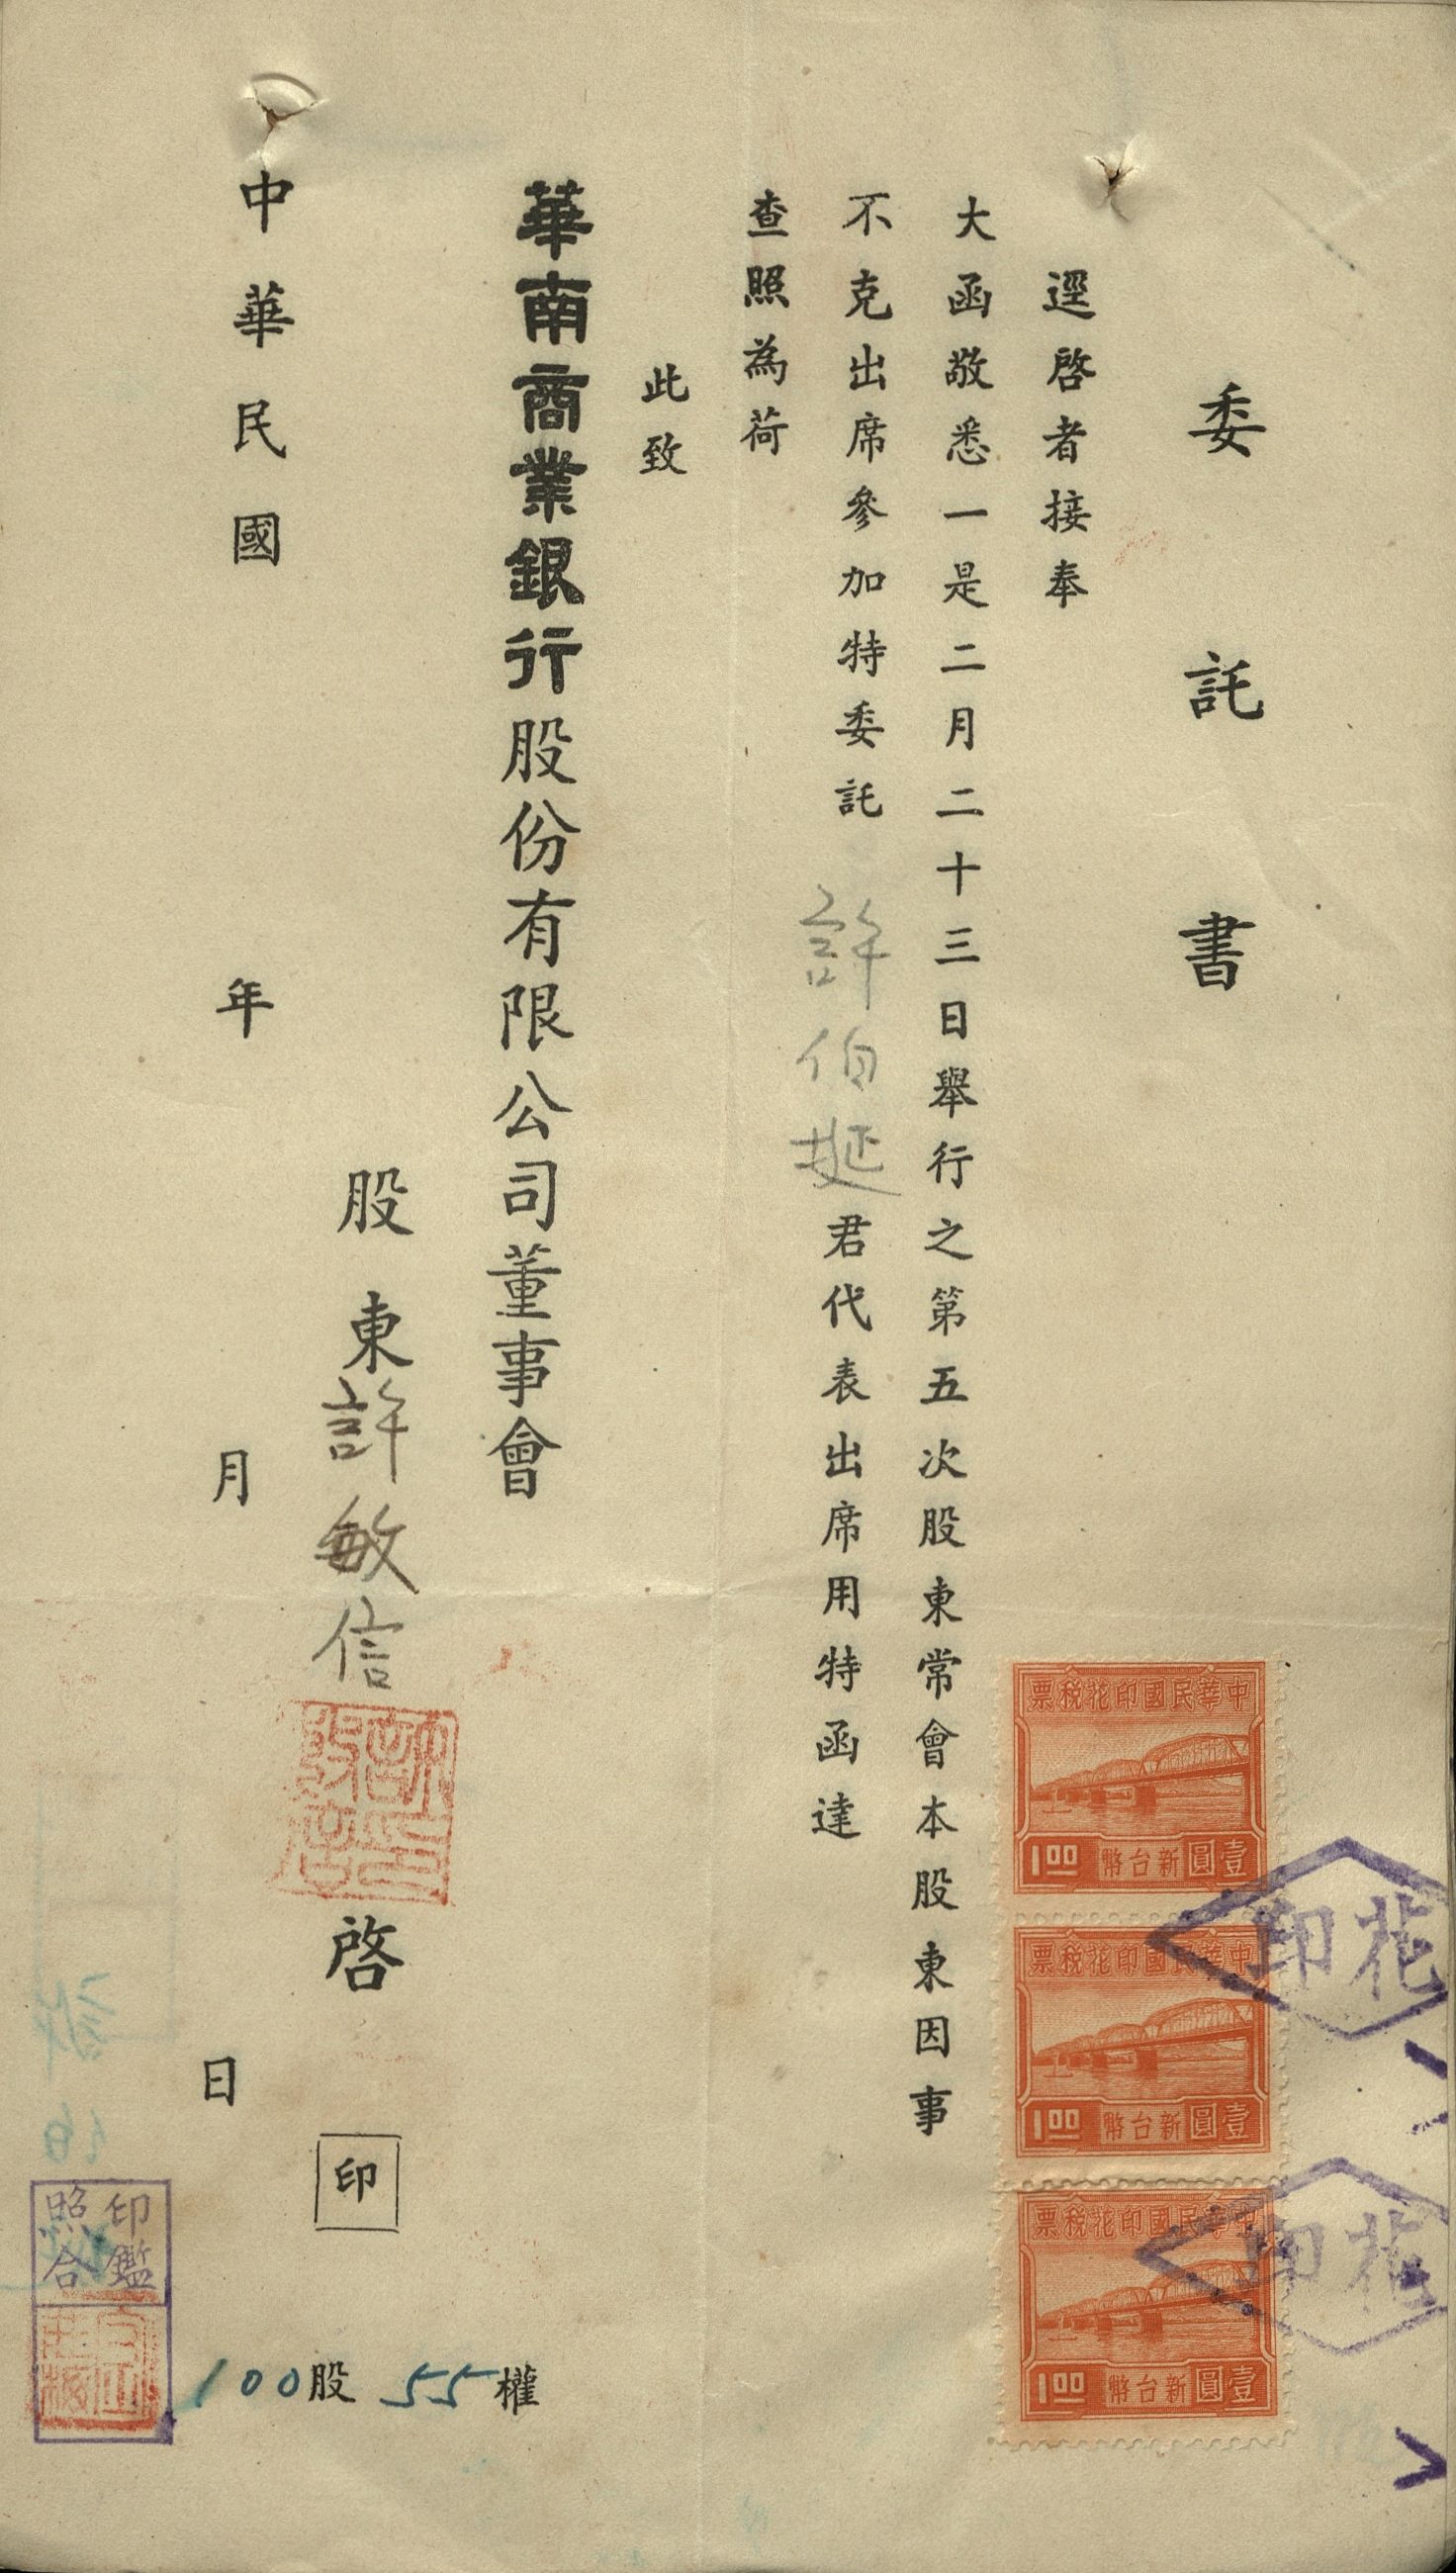 委託書
逕啓者接奉
大函敬悉一是二月二十三日舉行之第五次股東常會本股東因事
不克出席參加特委託許伯埏君代表出席用特函達
查照為荷
此致
華南商業銀行股份有限公司董事會
股東許敏信啓印
中華民國年月日
100股55權
中華民國印花稅票
壹圓新台幣
1.00
中華民國印花稅票
壹圓新台幣
1.00
中華民國印花稅票
壹圓新台幣
1.00
花印
花印
印鑑
照合